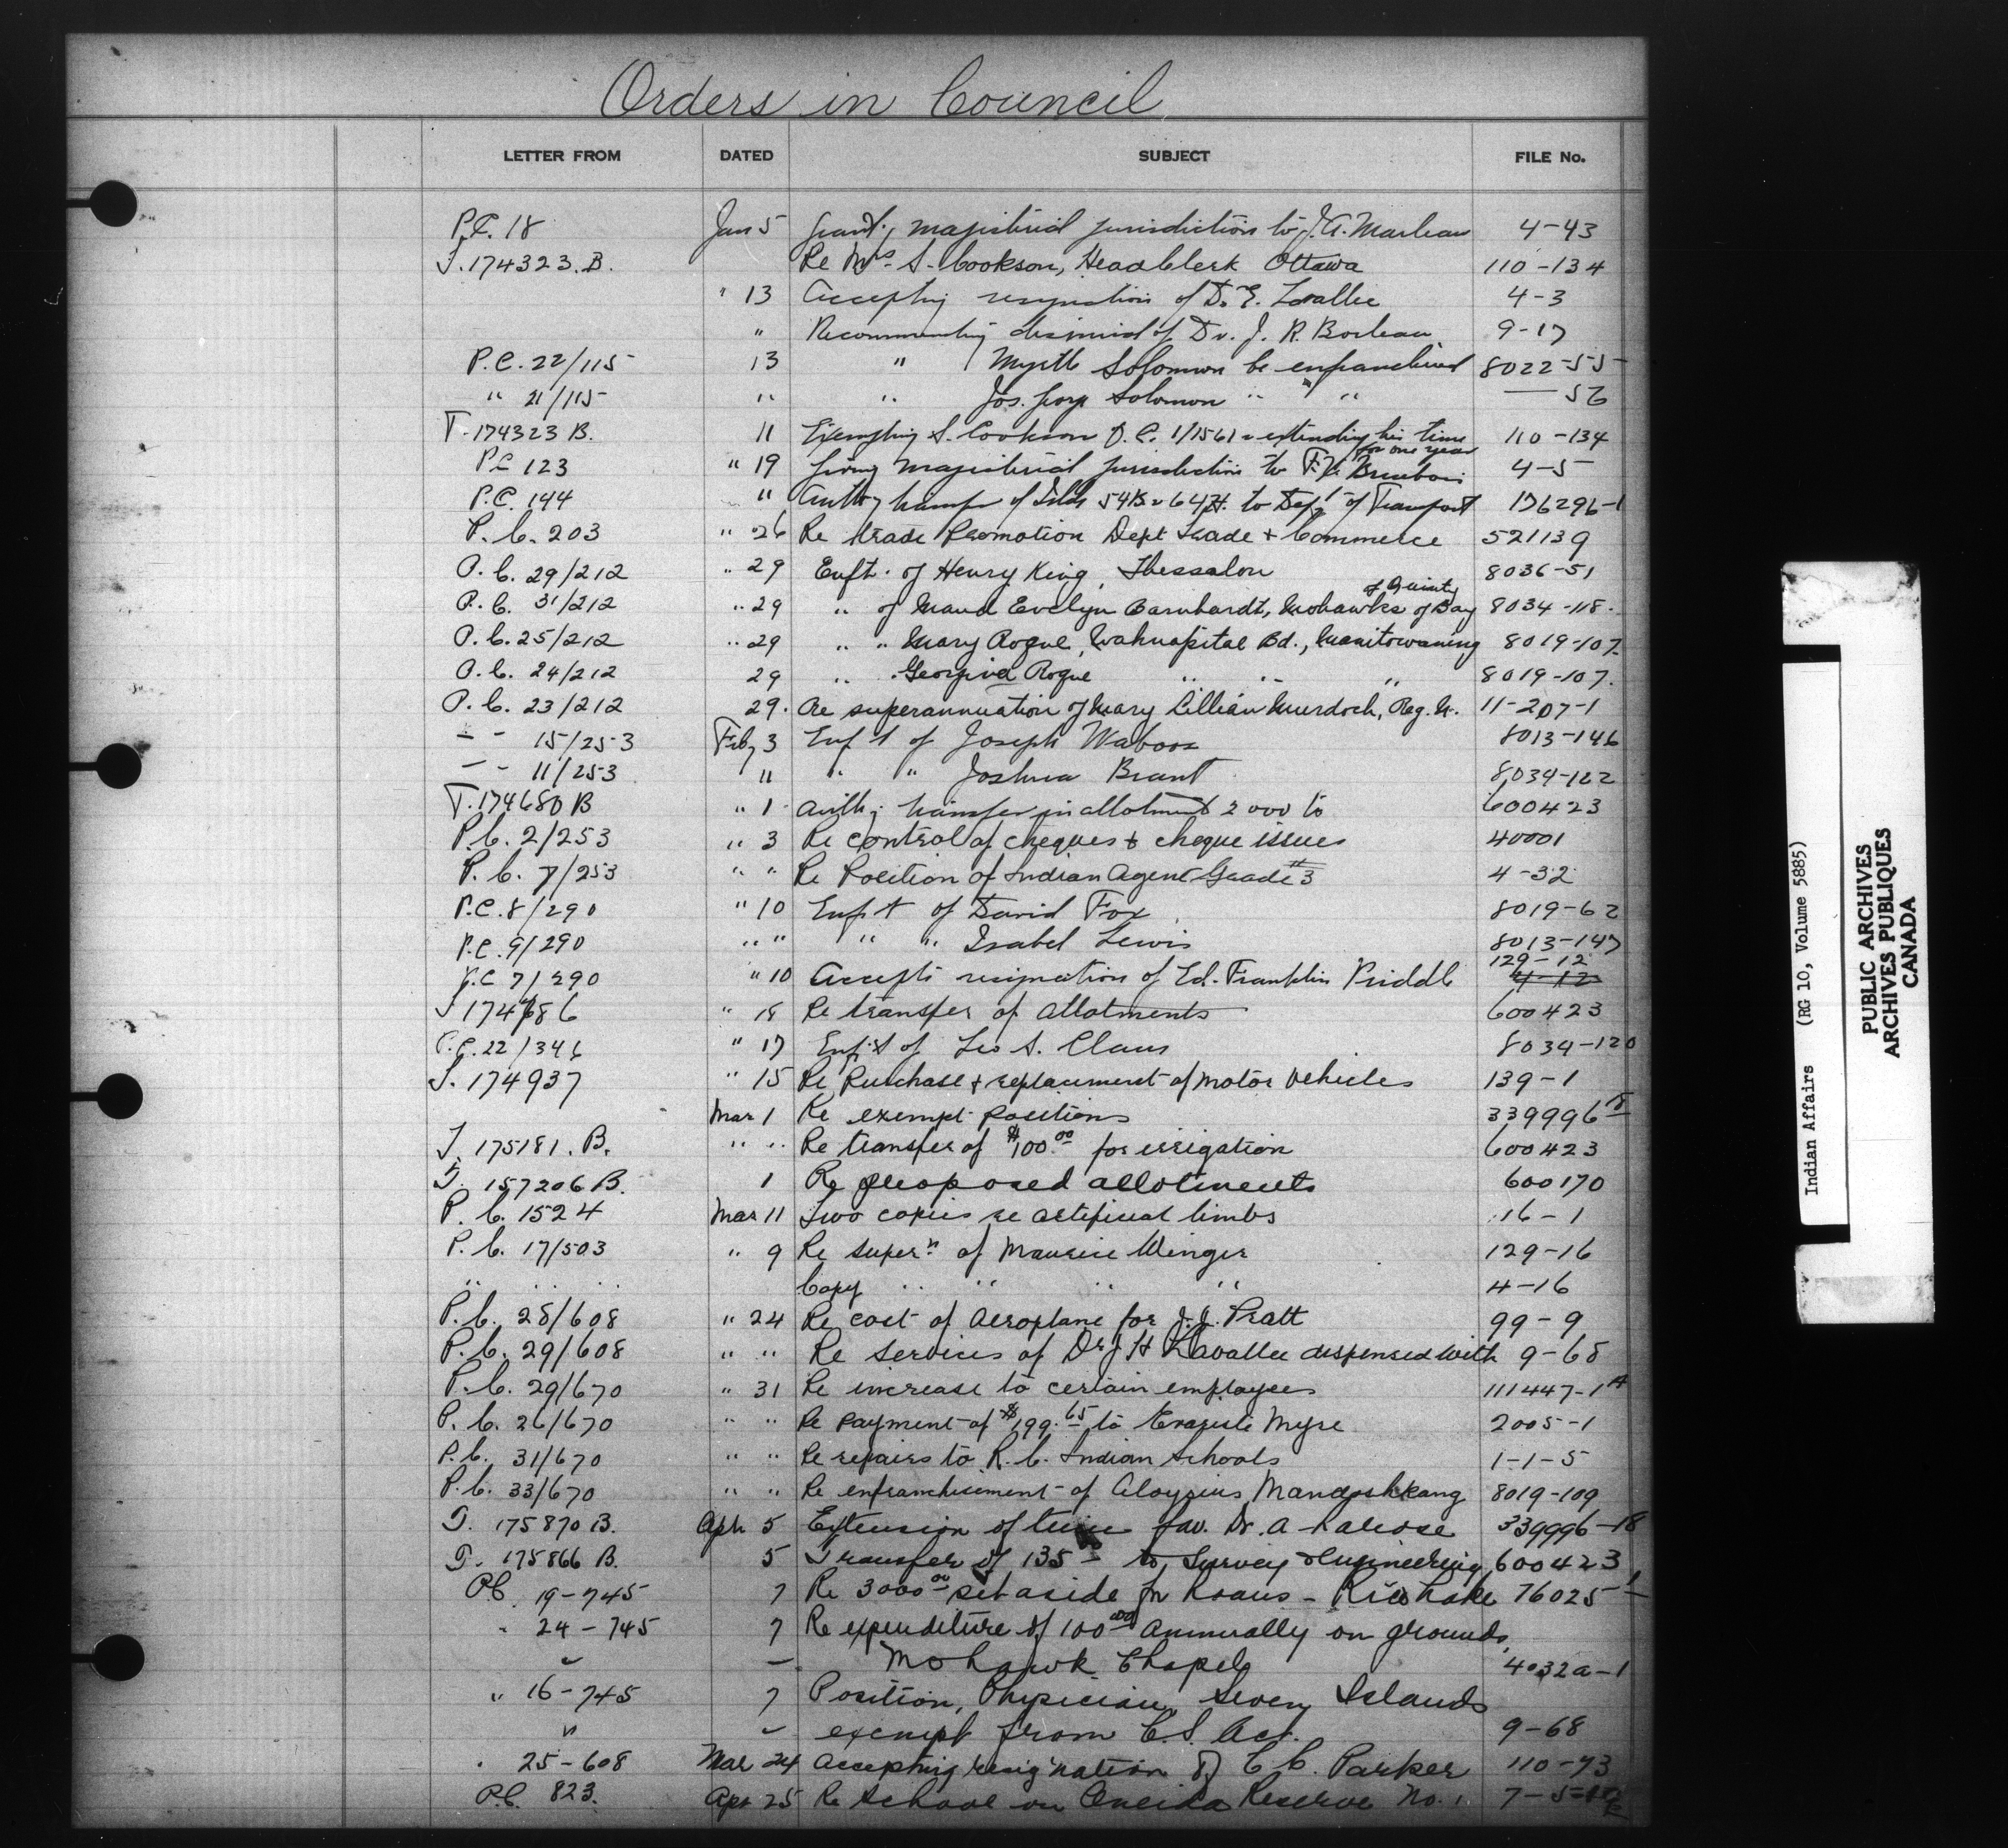 Orders in Council
LETTER FROM DATED SUBJECT FILE No.
P.C. 18 Jan 5 magisterial jurisdiction to J.A. Marleau 4-43
T.174323.B. Re S. Cookson, Head Clerk Ottawa 110-134
" 13 Accepting resignation of Dr. E. 4-3
" Recommending dismissal of Dr. J. R. 9-17
P.C. 22/115 13 " Myrtle Solomon be enfranchised 8022-55
" 21/115 " " Jos. Solomon " " " — 56
T.174323 B. 11 Exempting S. Cookson 1/1561 extending his time 110-134
for one year
PC 123 " 19 Giving magisterial jurisdiction to 4-5
P.C. 144 " 54B 64H. to Dept of Transport 176296-1
P.C. 203 " 26 Re trade Promotion Dept Trade + Commerce 521139
P.C. 29/212 " 29 Enft. of Henry King, Thessalon 8036-51
of Quinte
P.C. 31/212 " 29 " of Maud Evelyn Barnhardt, Mohawks of Bay 8034-118.
P.C. 25/212 " 29 " " Mary Rogue, Wahnapitae Bd., Manitowaning 8019-107.
P.C. 24/212 29 " Georgina Rogue " " " 8019-107.
P.C. 23/212 29. Re superannuation of Mary Lillian Murdoch, Reg. N. 11-207-1
- - 15/253 Feby 3 Enf't of Joseph Waboos 8013-146
- - 11/253 11 " " Joshua Brant 8034-122
T.174680 B " 1 transfer in allotment 2000 to 600423
P.C. 2/253 " 3 Re control of cheques + cheque issues 40001
P.C. 7/253 " " Re Position of Indian Agent Grade 3 4-32
P.C. 8/290 " 10 Enf't of David Fox 8019-62
P.C. 9/290 " " " " Isabel Lewis 8013-147
129-12
P.C. 7/290 " 10 Accepts resignation of Ed. Franklin Priddle 4-12
T 174686 " 18 Re transfer of allotments 600423
P.C. 22/346 " 17 Enf't of Leo S. Claus 8034-120
T. 174937 " 15 Re Purchase + replacement of motor Vehicles 139-1
Mar 1 Re exempt positions 339996
T. 175181. B. " " Re transfer of $100.00 for irrigation 600423
T. 157206 B. 1 Re proposed allotments 600170
P.C. 1524 Mar 11 Two copies re artificial limbs 16-1
P.C. 17/503 " 9 Re super'n of Maurice Winger 129-16
" " " Copy " " " " 4-16
P.C. 28/608 " 24 Re cost of Aeroplane for J.J. Pratt 99-9
P.C. 29/608 " " Re services of Dr J H Lavallee dispensed with 9-68
P.C. 29/670 " 31 Re increase to certain employees 111447-1A
P.C. 26/670 " " Re payment of $199.65 to Evariste Myre 2005-1
P.C. 31/670 " " Re repairs to R.C. Indian Schools 1-1-5
P.C. 33/670 " " Re enfranchisement of Aloysius Mandoshkang 8019-109
T. 175870 B. Apr 5 Extension of time fav. Dr. A Larose 339996-18
T. 175866 B. 5 Transfer of 135 to Survey + Engineering 600423
P.C. 19-745 7 Re 3000.00 set aside for Loans - Rice Lake 76025-1
" 24-745 7 Re expenditure of 100.00 annually on grounds,
" - Mohawk Chapel 4032a-1
" 16-745 7 Position, Physician, Seven Islands
" " exempt from C.S. Act. 9-68
" 25-608 Mar 24 Accepting resignation of C C. Parker 110-73
P.C. 823. Apr 25 Re School on Oneida Reserve No. 1.
Indian Affairs (RG 10, Volume 5885)
PUBLIC ARCHIVES
ARCHIVES PUBLIQUES
CANADA